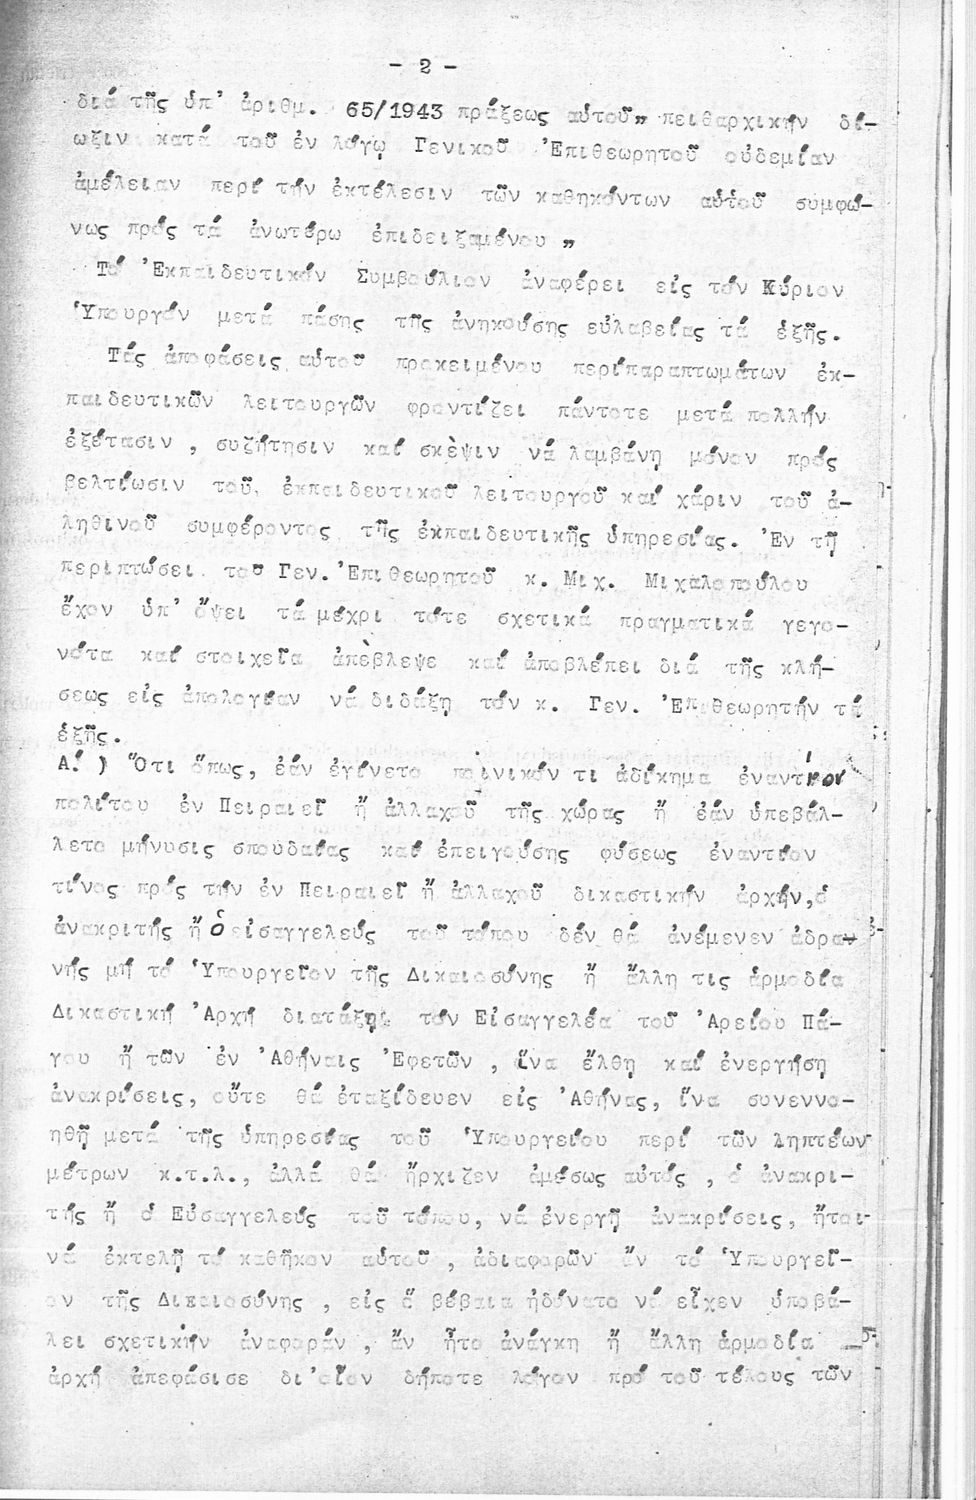 - 2 -
διά τῆς ὑπ' ἀριθμ. 65/1943 πράξεως αὐτοῦ„ πειθαρχικήν δί-
ωξιν κατά τοῦ ἐν λόγῳ Γενικοῦ Ἐπιθεωρητοῦ οὐδεμίαν
ἀμέλειαν περί τήν ἐκτέλεσιν τῶν καθηκόντων αὐτοῦ συμφώ-
νως πρός τά ἀνωτέρω ἐπιδειξαμένου „
Τό Ἐκπαιδευτικόν Συμβούλιον ἀναφέρει εἰς τόν Κύριον
Ὑπουργόν μετά πάσης τῆς ἀνηκούσης εὐλαβείας τά ἑξῆς.
Τάς ἀποφάσεις αὐτοῦ προκειμένου περί παραπτωμάτων ἐκ-
παιδευτικῶν λειτουργῶν φροντίζει πάντοτε μετά πολλήν
ἐξέτασιν , συζήτησιν καί σκὲψιν νά λαμβάνῃ μόνον πρός
βελτίωσιν τοῦ, ἐκπαιδευτικοῦ λειτουργοῦ καί χάριν τοῦ ἀ-
ληθινοῦ συμφέροντος τῆς ἐκπαιδευτικῆς ὑπηρεσίας. Ἐν τῇ
περιπτώσει τοῦ Γεν. Ἐπιθεωρητοῦ κ. Μιχ. Μιχαλοπούλου
ἔχον ὑπ' ὄψει τά μέχρι τότε σχετικά πραγματικά γεγο-
νότα καί στοιχεῖα ἀπὲβλεψε καί ἀποβλέπει διά τῆς κλή-
σεως εἰς ἀπολογίαν νά διδάξῃ τόν κ. Γεν. Ἐπιθεωρητήν τά
ἑξῆς.
Α΄ ) Ὅτι ὅπως, ἐάν ἐγίνετο ποινικόν τι ἀδίκημα ἐναντίον
πολίτου ἐν Πειραιεῖ ἤ ἀλλαχοῦ τῆς χώρας ἤ ἐάν ὑπεβάλ-
λετο μήνυσις σπουδαίας καί ἐπειγούσης φύσεως ἐναντίον
τίνος πρός τήν ἐν Πειραιεῖ ἤ ἀλλαχοῦ δικαστικήν ἀρχήν,ὁ
ἀνακριτής ἤ ὁ εἰσαγγελεύς τοῦ τόπου δέν θά ἀνέμενεν ἀδρα-
νής μή τό Ὑπουργεῖον τῆς Δικαιοσύνης ἤ ἄλλη τις ἁρμοδία
Δικαστική Ἀρχή διατάξῃ τόν Εἰσαγγελέα τοῦ Ἀρείου Πά-
γου ἤ τῶν ἐν Ἀθήναις Ἐφετῶν , ἵνα ἔλθῃ καί ἐνεργήσῃ
ἀνακρίσεις, οὔτε θά ἐταξίδευεν εἰς Ἀθήνας, ἵνα συνεννο-
ηθῇ μετά τῆς ὑπηρεσίας τοῦ Ὑπουργείου περί τῶν ληπτέων
μέτρων κ.τ.λ., ἀλλά θά ἤρχιζεν ἀμέσως αὐτός , ὁ ἀνακρι-
τής ἤ ὁ Εὐσαγγελεύς τοῦ τόπου, νά ἐνεργῇ ἀνακρίσεις, ἤτοι
νά ἐκτελῇ τό καθῆκον αὐτοῦ , ἀδιαφορῶν ἄν τό Ὑπουργεῖ-
ον τῆς Δικαιοσύνης , εἰς ὅ βέβαια ἠδύνατο νά εἶχεν ὑποβά-
λει σχετικήν ἀναφοράν , ἄν ἦτο ἀνάγκη ἤ ἄλλη ἁρμοδία
ἀρχή ἀπεφάσισε δι' οἷον δήποτε λόγον πρό τοῦ τέλους τῶν